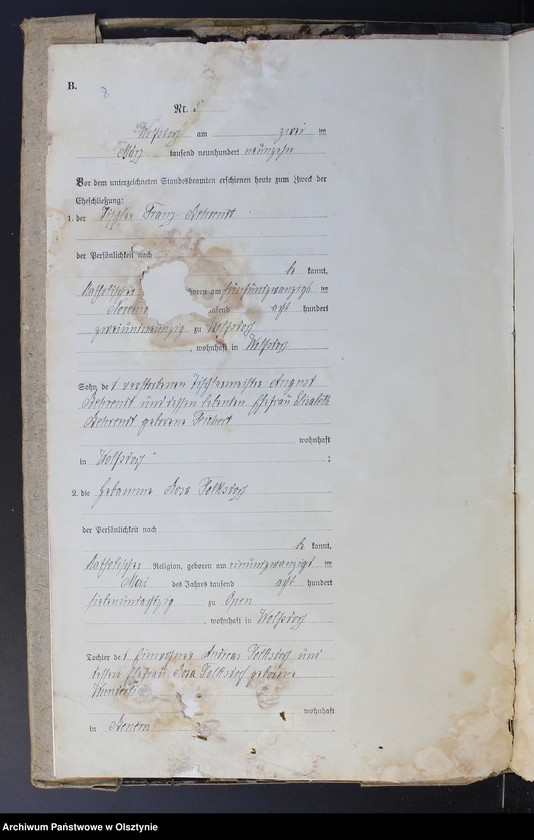 B.
8
Nr. 5
Wolfsdorf am zwei ten
März tausend neunhundert neunzehn
Vor dem unterzeichneten Standesbeamten erschienen heute zum Zweck der
Eheschließung:
1. der Tischler Franz Behrendt
der Persönlichkeit nach
be kannt,
katholischer geboren am fünfundzwanzigsten
ausend acht hundert
zweiundneunzig zu Wolfsdorf
, wohnhaft in Wolfsdorf
Sohn des verstorbenen Tischlermeisters August
Behrendt und dessen lebenden Ehefrau Elisabeth
Behrendt geborene
wohnhaft
in Wolfsdorf ;
2. die Hebamme Rosa Volksdorf
der Persönlichkeit nach
be kannt,
katholischer Religion, geboren am einundzwanzigsten
Mai des Jahres tausend acht hundert
siebenundachtzig zu Open
, wohnhaft in Wolfsdorf
Tochter des Einwohners Andreas Volksdorf und
dessen Ehefrau Rosa Volksdorf geborene
wohnhaft
in Benern
Archiwum Państwowe w Olsztynie